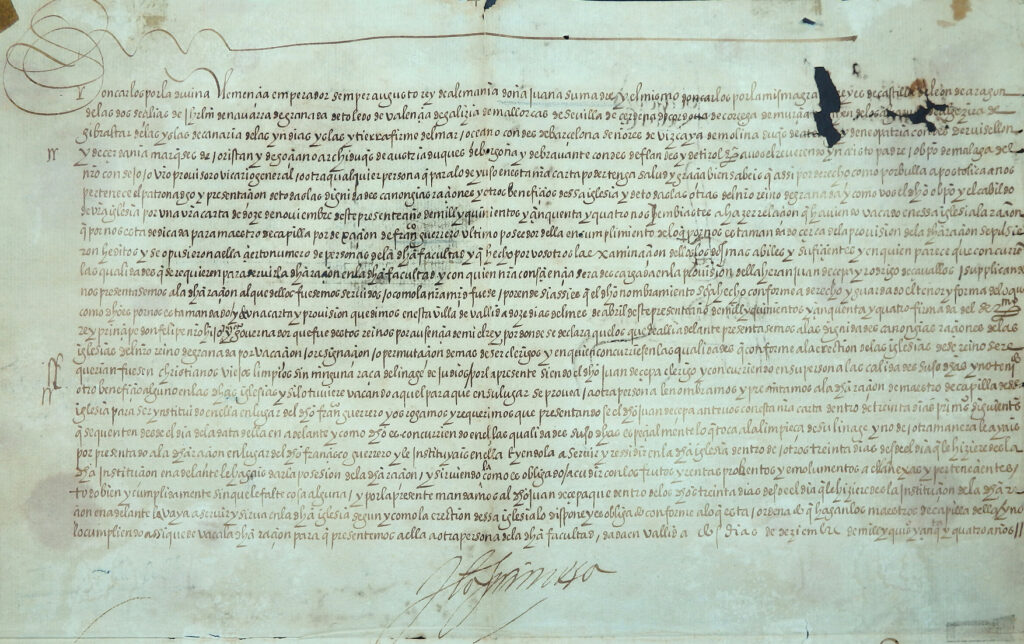 Don carlos por la divina clemençia emperador semper augusto rey de alemania doña juana su madre y el mismo don carlos por la misma graçia reyes de castilla de leon de aragon
de las dos seçilias de Jhrlm de navarra de granada de toledo de valençia de galizia de mallorcas de sevilla de cerdeña de cordova de corçega de murçia de Jaen de los algarves de algezira de
gibraltar de las yslas de canaria de las yndias yslas y tierra firme del mar oceano condes de barçelona señores de vizcaya y de molina duques de atenas y de neopatria condes de ruisellon
y de cerdania marqueses de oristan y de goçiano archiduques de austria duques de borgoña y de bravante condes de flandes y de tirol &c a vos el reverendo yn cristo padre obpo de malaga del
nro consejo o vro provisor o vicario general o otra qualquier persona que para lo de yuso en esta mi carta poder tenga salud y graçia bien sabeis que assi por derecho como por bulla apostolica a nos
perteneçe el patronadgo y presentaçion de todas las dignidades canongias raçiones y otros benefiçios dessa iglesia y de todas las otras del nro reino de granada y como vos el dho obpo y el cabildo
de vra iglesia por una vra carta de doze de noviembre deste presente año de mill y quinientos y çinquenta y quatro nos embiastes a hazer relaçion que haviendo vacado en essa iglesia la raçion
que por nos esta dedicada para maestro de capilla por dexaçion de franco guerrero ultimo poseedor della en cumplimiento de lo que por nos esta mandado cerca de la provision de la dha raçion se pusie
ron heditos y se opusieron a ella çierto numero de personas de la dha facultad y que hecho por vosotros la examinaçion dellos los dos mas abiles y sufiçientes y en quien pareçe que concurren
las qualidades que se requieren para servir la dha raçion en la dha facultad y con quien nra consçiençia sera descargada en la provision della heran juan de cepa y rodrigo de cavallos suplicando
nos presentasemos a la dha raçion al que dellos fuesemos servidos o como la nra mrd fuese por ende si assi es que el dho nombramiento se ha hecho conforme a derecho y guardado el tenor y forma de lo que
como dho es por nos esta mandado y una carta y provision que dimos en esta villa de vallid a doze dias de abril deste presente año de mill y quinientos y çinquenta y quatro firmada del sermo
rey prinçipe don felipe nro hijo governador que fue destos reinos por ausençia de mi el rey por donde se declara que los que de alli adelante presentasemos a las dignidades canongias raçiones de las
iglesias del nro reino de granada por vacaçion o resignaçion o permutaçion demas de ser clerigos y en quien concurriesen las qualidades que conforme a la erection de las iglesias desse reino se re
querian fuesen christianos viejos limpios sin ninguna raça de linage de judios por la presente siendo el dho juan de cepa clerigo y concurriendo en su persona las calidades suso dhas y no teniendo
otro benefiçio alguno en las dhas iglesias y si lo tuviere vacando aquel para que en su lugar se provea a otra persona le nombramos y presentamos a la dha raçion de maestro de capilla dessa
iglesia para ser ynstituido en ella en lugar del dho franco guerrero y os rogamos y requerimos que presentandose el dho juan de cepa ante vos con esta nra carta dentro de treinta dias primos siguientes
que se quenten desde el dia de la data della en adelante y como dho es concurriendo en el las qualidades suso dhas espeçialmente lo que toca a la limpieça de su linage y no de otra manera le ayais
por presentado a la dha raçion en lugar del dho françisco guerrero y le instituyais en ella y yendola a servir y residir en la dha iglesia dentro de otros treinta dias desde el dia que le hizieredes la
dha instituçion en adelante le hagais dar la posesion de la dha raçion y sirviendola como es obligado acudir con los frutos y rentas proventos y emolumentos a ella anexas y perteneçientes
todo bien y cumplidamente sin que le falte cosa alguna y por la presente mandamos al dho juan de cepa que dentro de los dhos treinta dias desde el dia que le hizieredes la instituçion de la dha ra
çion en adelante la vaya a servir y sirva en la dha iglesia segun y como la erection dessa iglesia lo dispone y es obligado conforme a lo que esta ordenado que hagan los maestros de capilla della y no
lo cumpliendo assi que de vaca la dha raçion para que presentemos a ella a otra persona de la dha facultad, dada en vallid a dias de deziembre de mill y quios y çinqta y quatro años